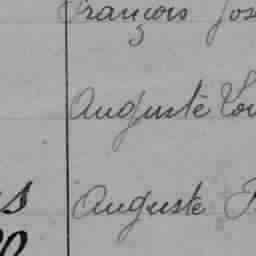 François Jos
Auguste Lou
Auguste